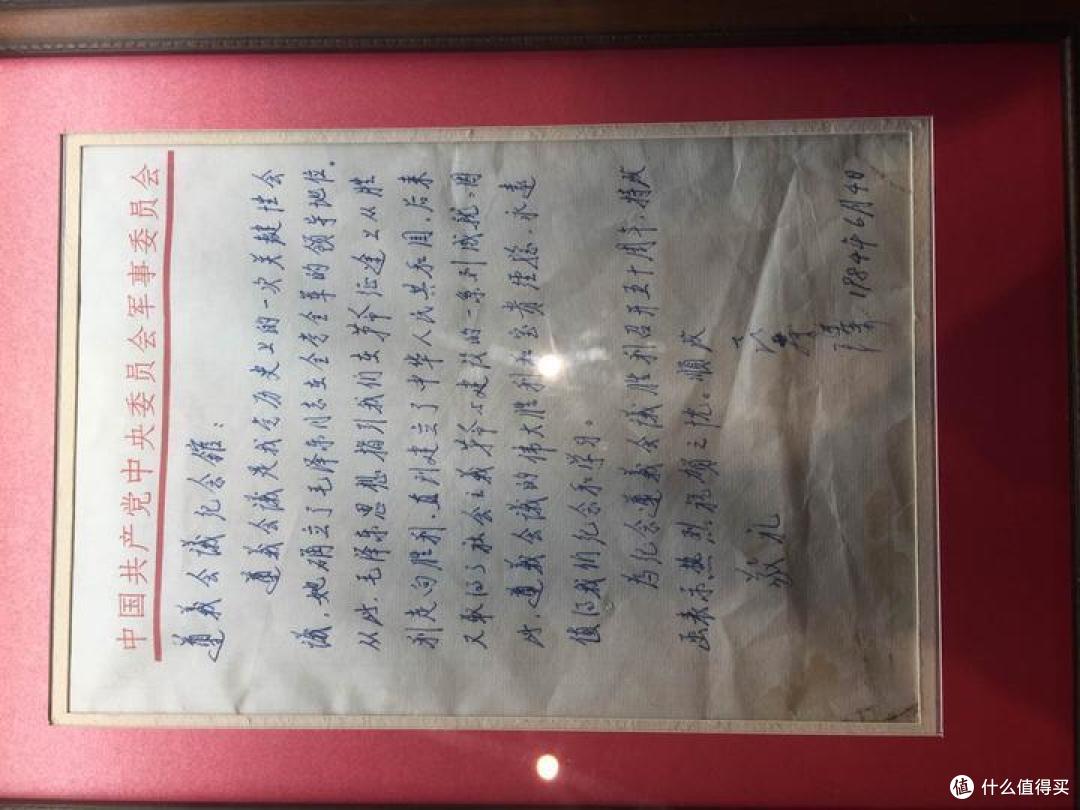 中国共产党中央委员会军事委员会
遵义会议纪念馆：
遵义会议是我党历史上的一次关键性会
议，她确立了毛泽东同志在全党全军的领导地位。
从此，毛泽东思想指引我们在革命征途上从胜
利走向胜利，直到建立了中华人民共和国，后来
又取得了社会主义革命与建设的一系列成就。因
此，遵义会议的伟大胜利和宝贵经验，永远
值得我们纪念和学习。
为纪念遵义会议胜利召开五十周年，特致
函表示热烈祝颂之忱。顺致
敬礼
1984年6月4日
值 什么值得买